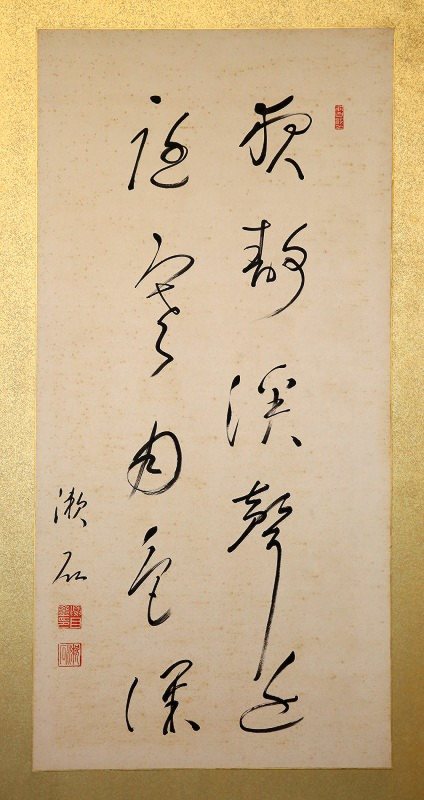 夜静溪聲近
庭寒月色深
漱石